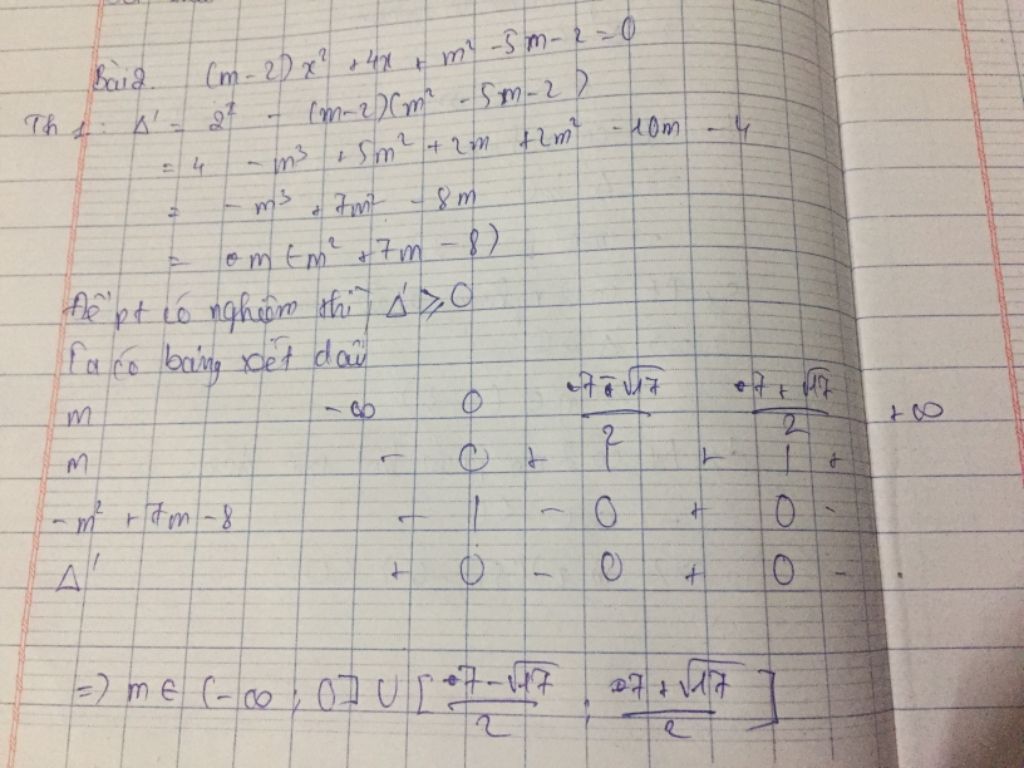 Bài 2. (m-2)x² + 4x + m² - 5m - 2 = 0
Th 1: Δ' = 2² - (m-2)(m² - 5m - 2)
= 4 - m³ + 5m² + 2m + 2m² - 10m - 4
= - m³ + 7m² - 8m
= m (-m² + 7m - 8)
Để pt có nghiệm thì Δ' ⩾ 0
Ta có bảng xét dấu
m -∞ 0 (7 - √17)/2 (7 + √17)/2 +∞
m - 0 + | + | +
-m² + 7m - 8 - | - 0 + 0 -
Δ' + 0 - 0 + 0 -
=> m ∈ (-∞ ; 0] ∪ [(7 - √17)/2 ; (7 + √17)/2]